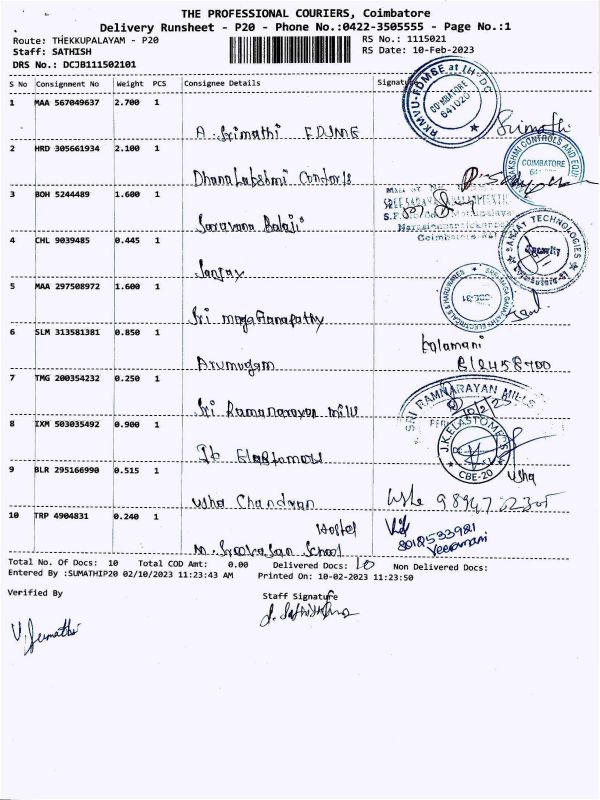 THE PROFESSIONAL COURIERS, Coimbatore
Delivery Runsheet - P20 - Phone No.:0422-3505555 - Page No.:1
Route: THEKKUPALAYAM - P20 RS No.: 1115021
Staff: SATHISH RS Date: 10-Feb-2023
DRS No.: DCJB111502101
S No Consignment No Weight PCS Consignee Details Signature
1 MAA 567049637 2.700 1
A. Srimathi FDIME Srimathi
RKMVU-FDMSE at IHRDC
COIMBATORE
641020
2 HRD 305661934 2.100 1
Dhana Lakshmi Controls
LAKSHMI CONTROLS AND EQUI
COIMBATORE
3 BOH 5244489 1.600 1
Saravana Balaji
Coimbatore
4 CHL 9039485 0.445 1
Sanjay
SANJAY TECHNOLOGIES
Security
5 MAA 297508972 1.600 1
Sri maga Ganapathy
SRI MAGA GANAPATHY ELECTRICALS & HARDWARES
6 SLM 313581381 0.850 1
Arumugam
Kalamani
7 TMG 200354232 0.250 1
Sri Ramanarayan mills
SRI RAMNARAYAN MILLS
10/2/23
8 IXM 503035492 0.900 1
J.K.ELASTOMERS
CBE-20
Usha
9 BLR 295166990 0.515 1
Usha Chandran
10 TRP 4904831 0.240 1
Hostel
School
Veeramani
Total No. Of Docs: 10 Total COD Amt: 0.00 Delivered Docs: 10 Non Delivered Docs:
Entered By :SUMATHIP20 02/10/2023 11:23:43 AM Printed On: 10-02-2023 11:23:50
Verified By Staff Signature
V. Sumathi